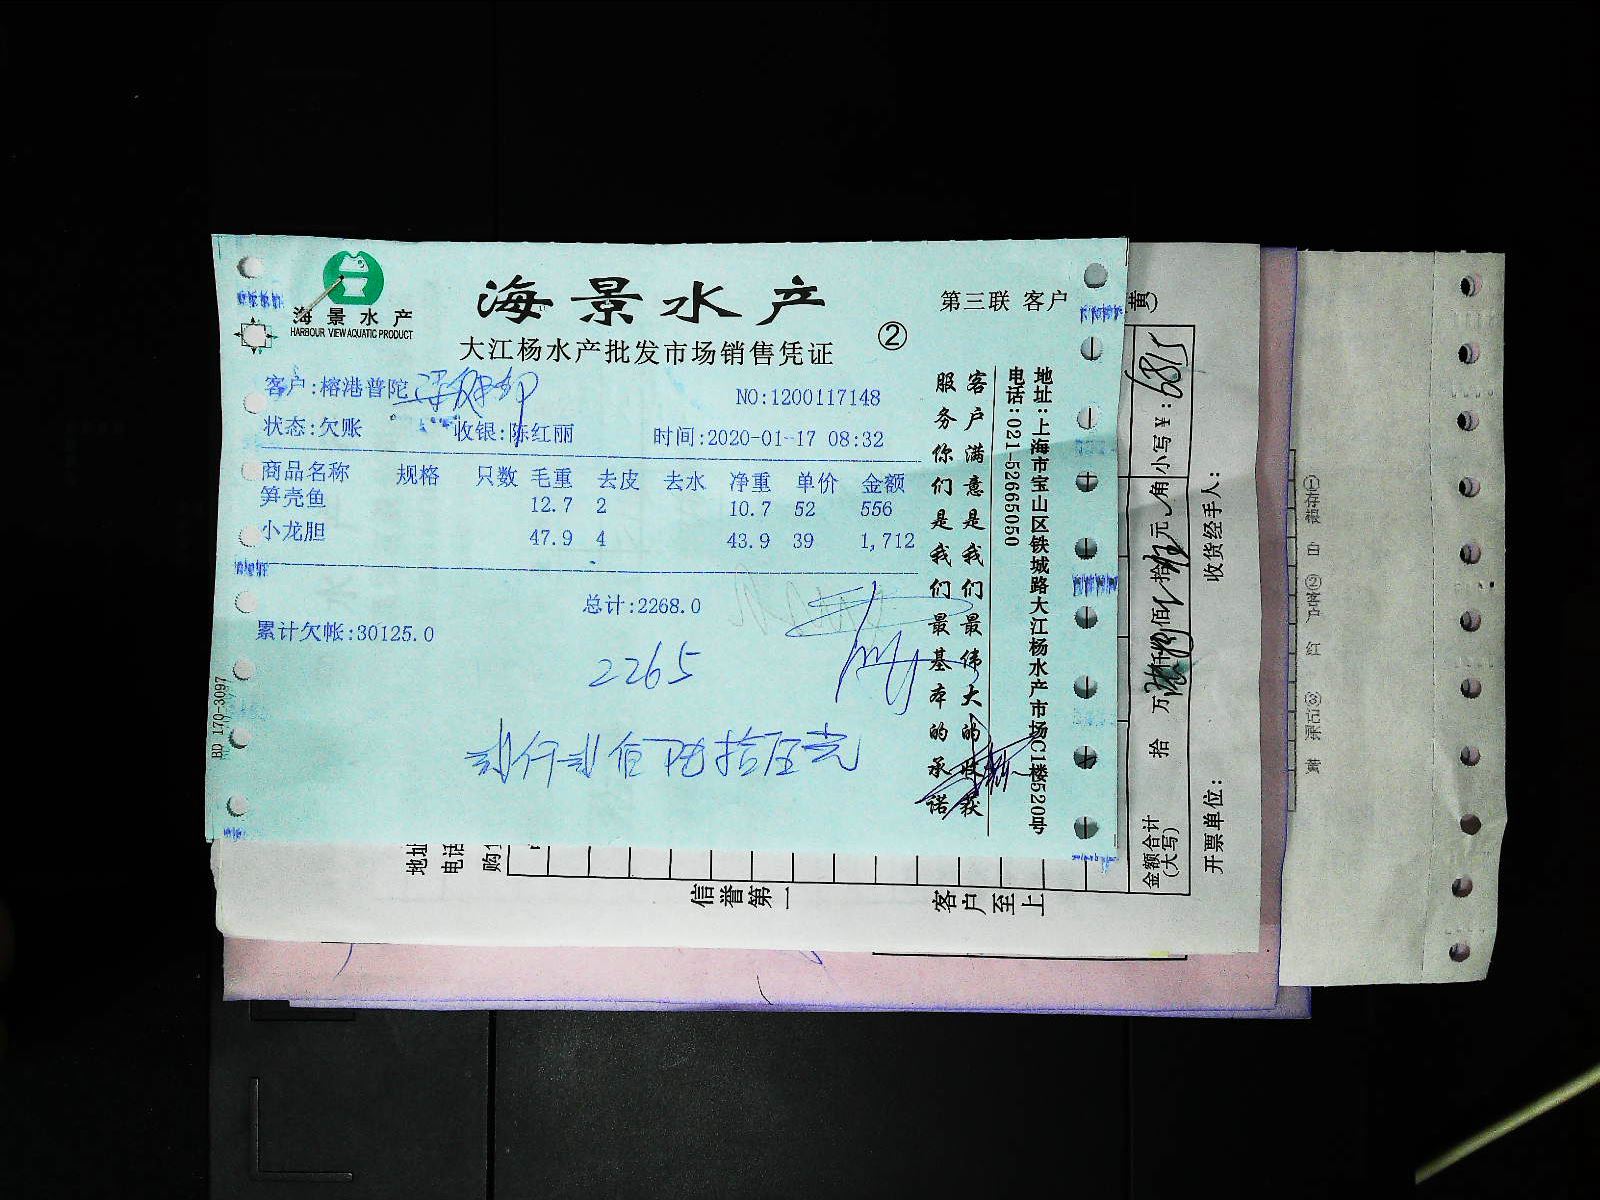 海景水产
HARBOUR VIEW AQUATIC PRODUCT
海景水产
大江杨水产批发市场销售凭证
②
第三联 客户
客户:榕港普陀
NO:1200117148
状态:欠账 收银:陈红丽 时间:2020-01-17 08:32
商品名称 规格 只数 毛重 去皮 去水 净重 单价 金额
笋壳鱼 12.7 2 10.7 52 556
小龙胆 47.9 4 43.9 39 1,712
总计:2268.0
累计欠帐:30125.0
2265
贰仟贰佰陆拾伍元
客户满意是我们最伟大的收获
服务你们是我们最基本的承诺
地址:上海市宝山区铁城路大江杨水产市场C1楼520号
电话:021-52665050
BD 170-3097
黄)
金额合计
(大写)
拾 万 佰 拾 元 角 小写¥: 6815
开票单位:
收货经手人:
地址
电话
信誉第一
客户至上
①存根 白 ②客户 红 ③记 黄